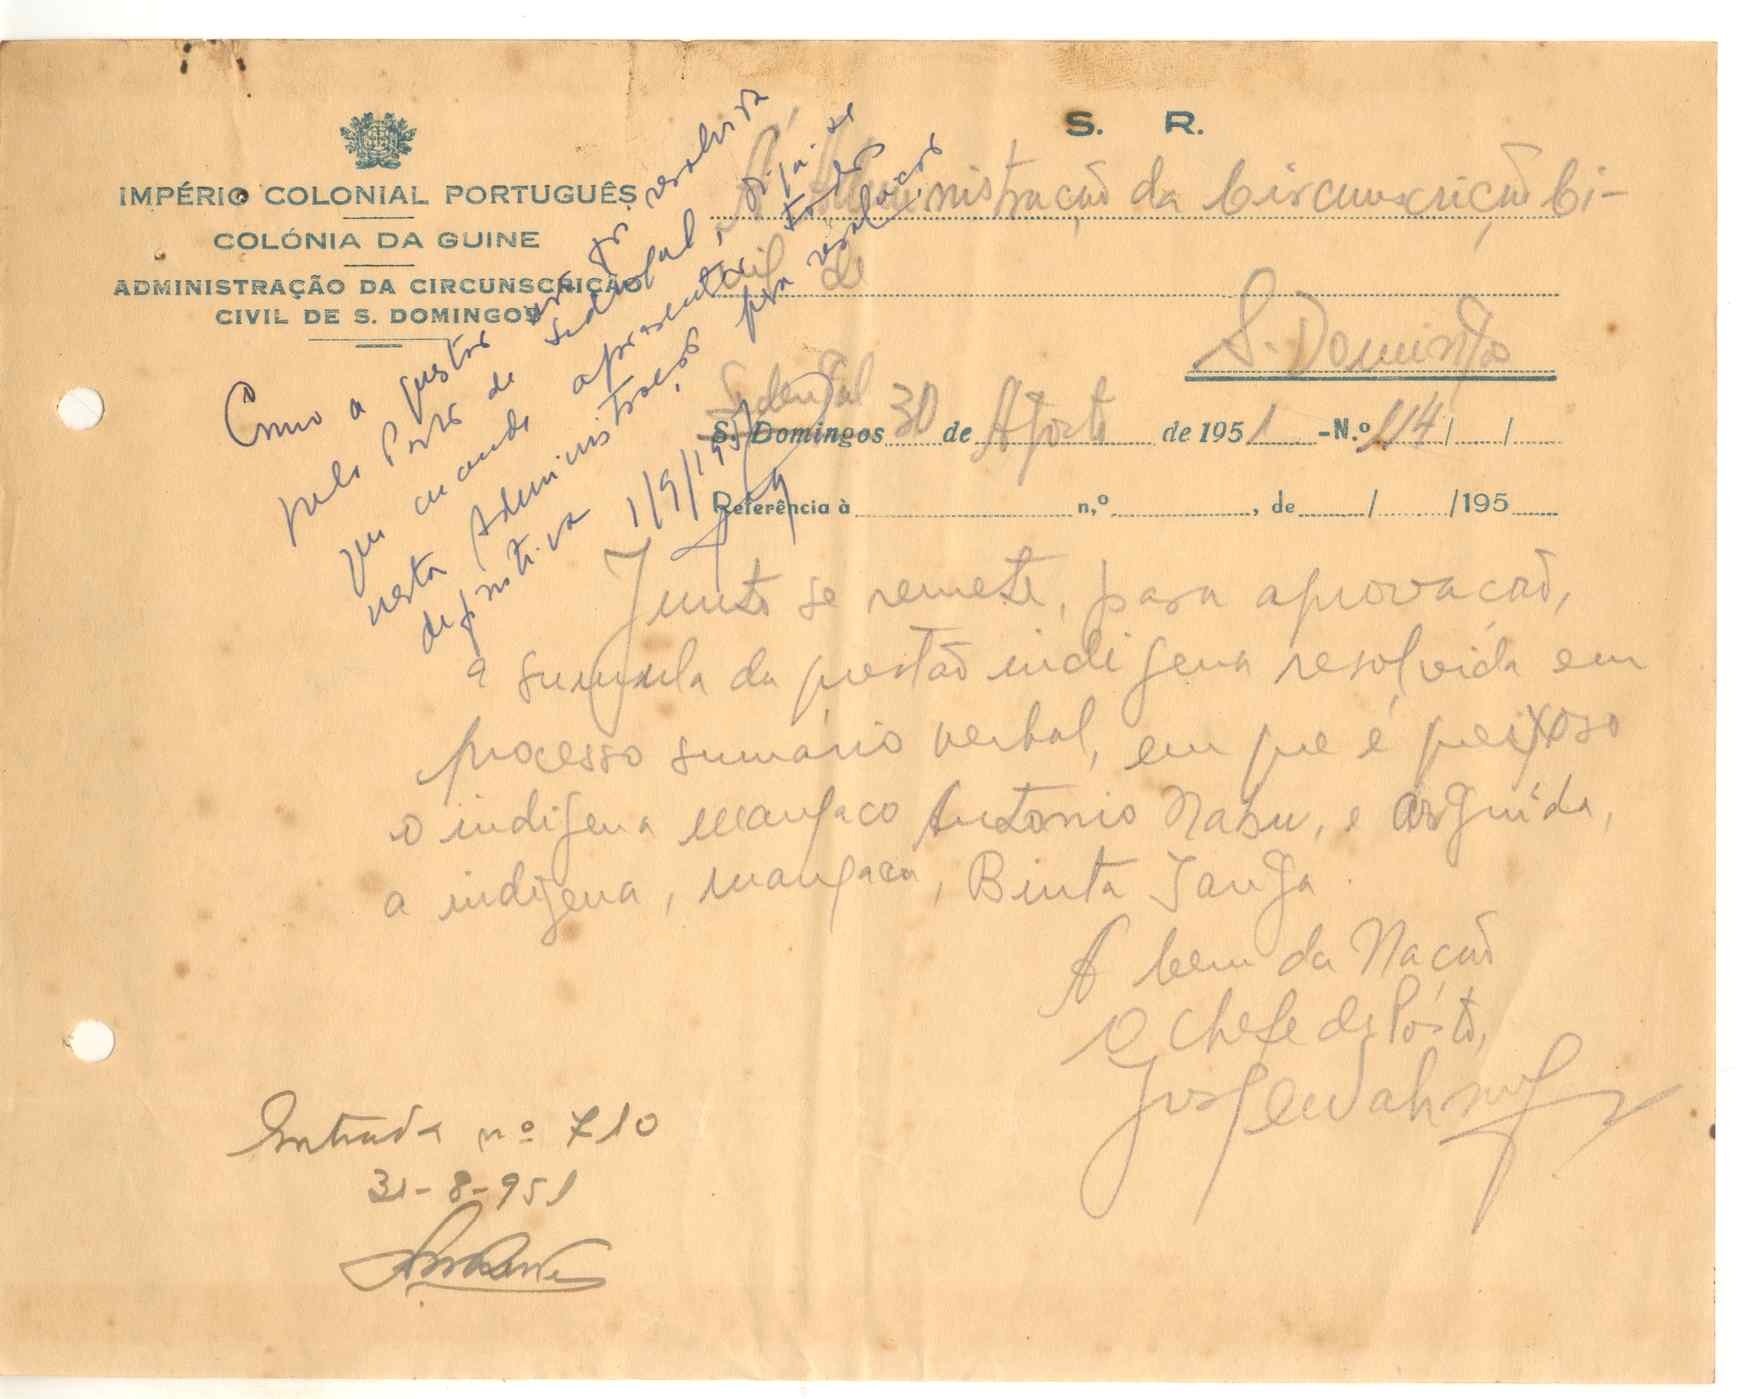 S. R.
IMPÉRIO COLONIAL PORTUGUÊS
COLÓNIA DA GUINE
ADMINISTRAÇÃO DA CIRCUNSCRIÇÃO
CIVIL DE S. DOMINGOS
À Administração da Circunscrição Ci-
vil de
S. Domingos
Sedengal
S. Domingos 30 de Agosto de 1951 - N.º 114/ /
Referência à n,º , de / /195
Como a questão não foi resolvida
pelo Posto de Sedengal, diga-se
que mande apresentar todos
nesta Administração pra resolução
definitiva 1/9/1951
Junto se remete, para aprovação,
a sumula da questão indigena resolvida em
processo sumário verbal, em que é queixoso
o indigena manjaco Antonio Nabu, e arguida,
a indigena, manjaca, Binta Janga.
A bem da Nação
O Chefe de Pôsto,
Entrada nº 710
31-8-951